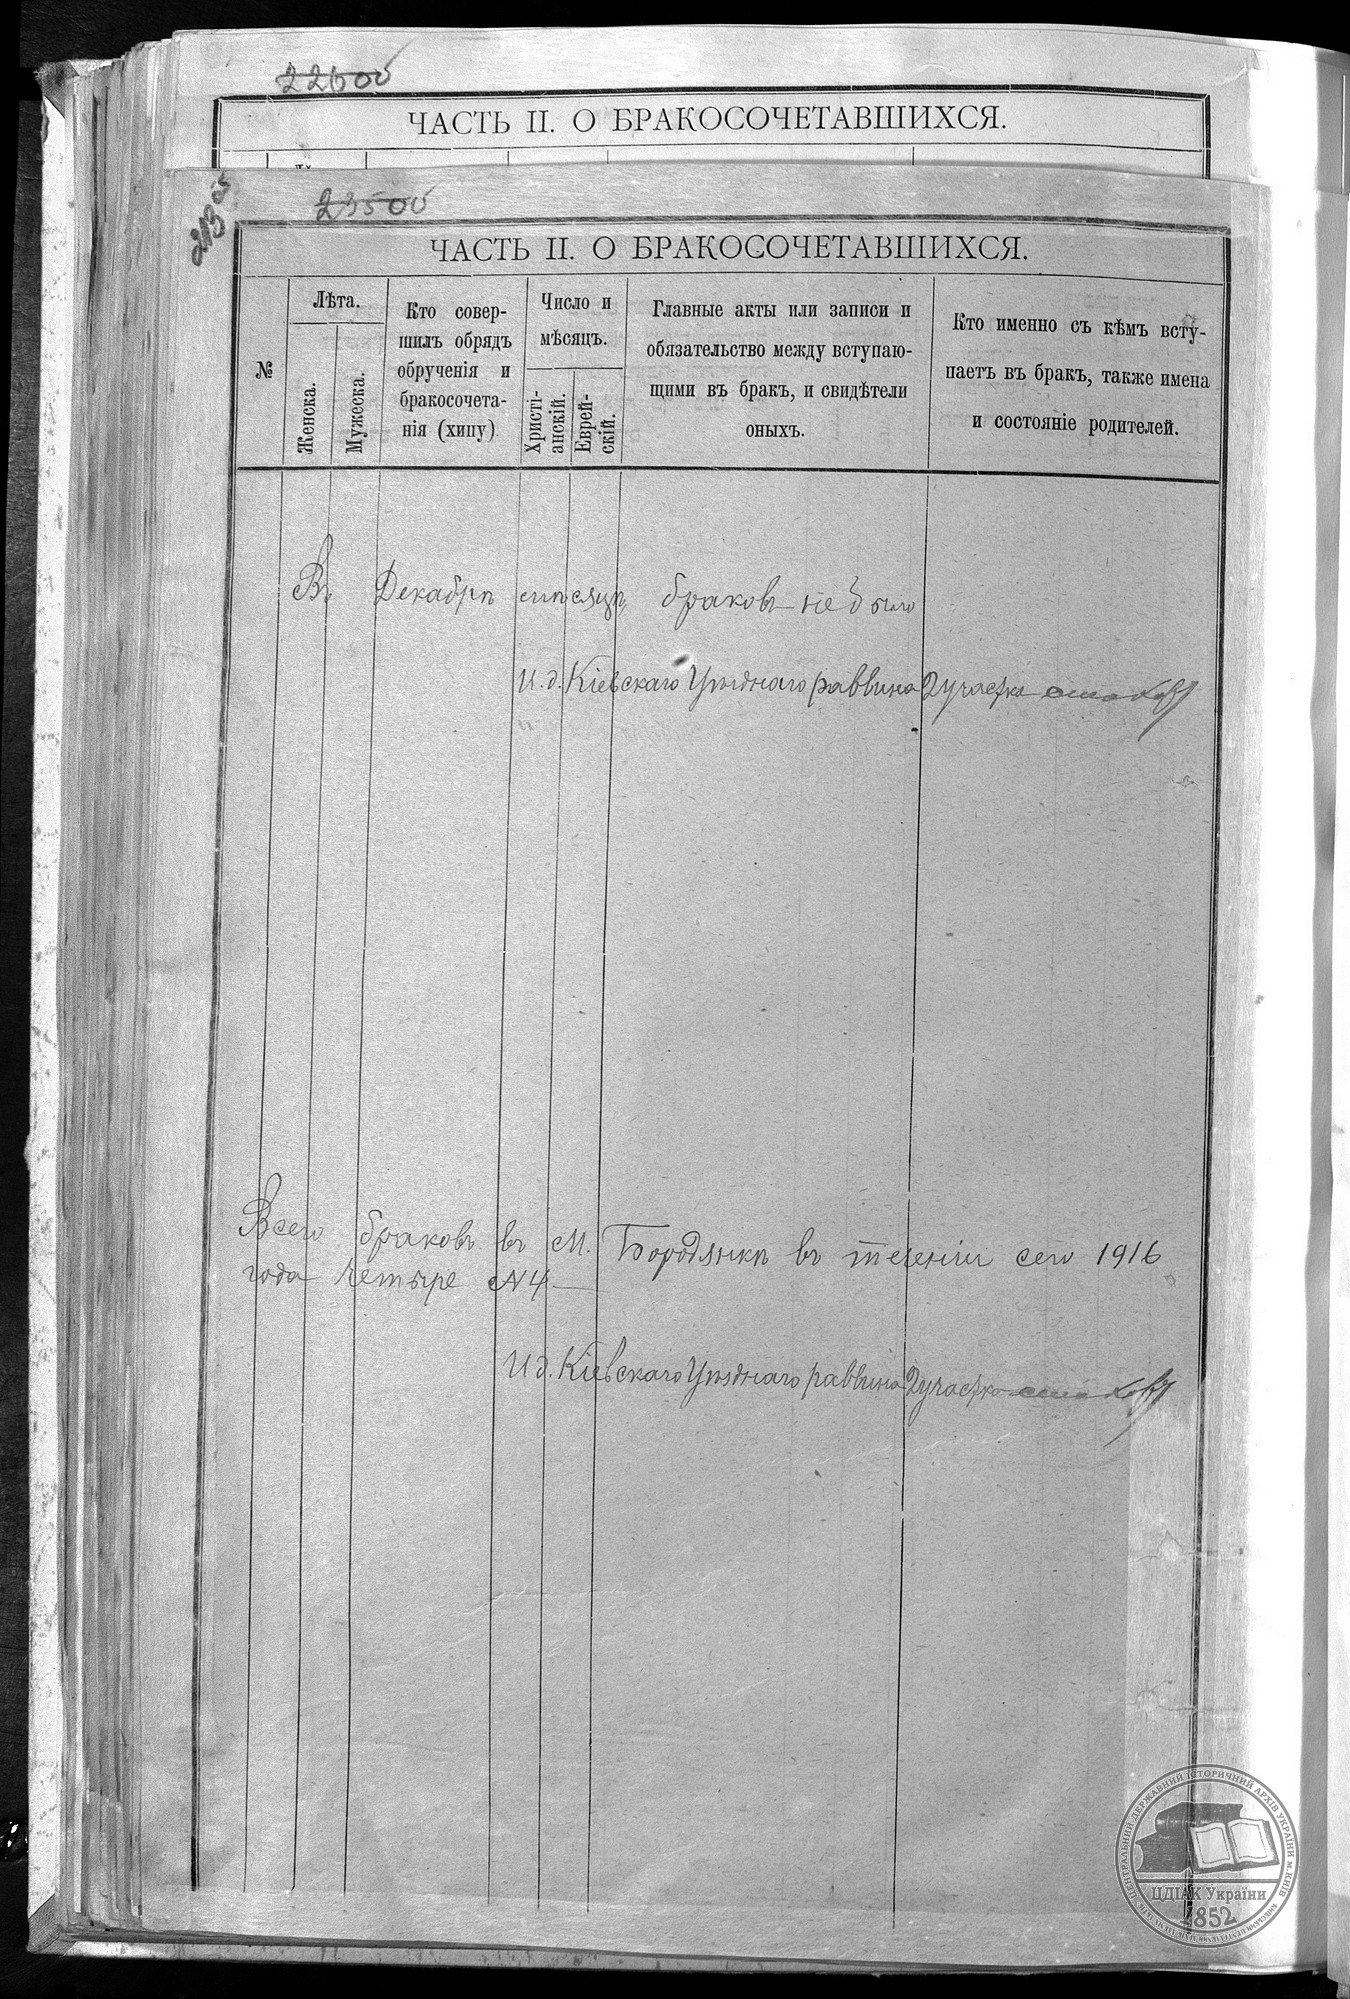 22500
ЧАСТЬ II. О БРАКОСОЧЕТАВШИХСЯ.
213об
23500
ЧАСТЬ II. О БРАКОСОЧЕТАВШИХСЯ.
№
Лѣта.
Женска.
Мужеска.
Кто совер-
шилъ обрядъ
обрученія и
бракосочета-
нія (хипу)
Число и
мѣсяцъ.
Христі-
анскій.
Еврей-
скій.
Главные акты или записи и
обязательство между вступаю-
щими въ бракъ, и свидѣтели
оныхъ.
Кто именно съ кѣмъ всту-
паетъ въ бракъ, также имена
и состояніе родителей.
Въ Декабрѣ мѣсяцѣ браковъ не было
И. д. Кіевскаго Уѣзднаго раввина 2 участка
Всего браковъ въ М. Бородянкѣ въ теченіи сего 1916
года четыре №4
И д. Кіевскаго Уѣзднаго раввина 2 участка
ЦЕНТРАЛЬНИЙ ДЕРЖАВНИЙ ІСТОРИЧНИЙ АРХІВ УКРАЇНИ м. КИЇВ
ЦДІАК України
1852